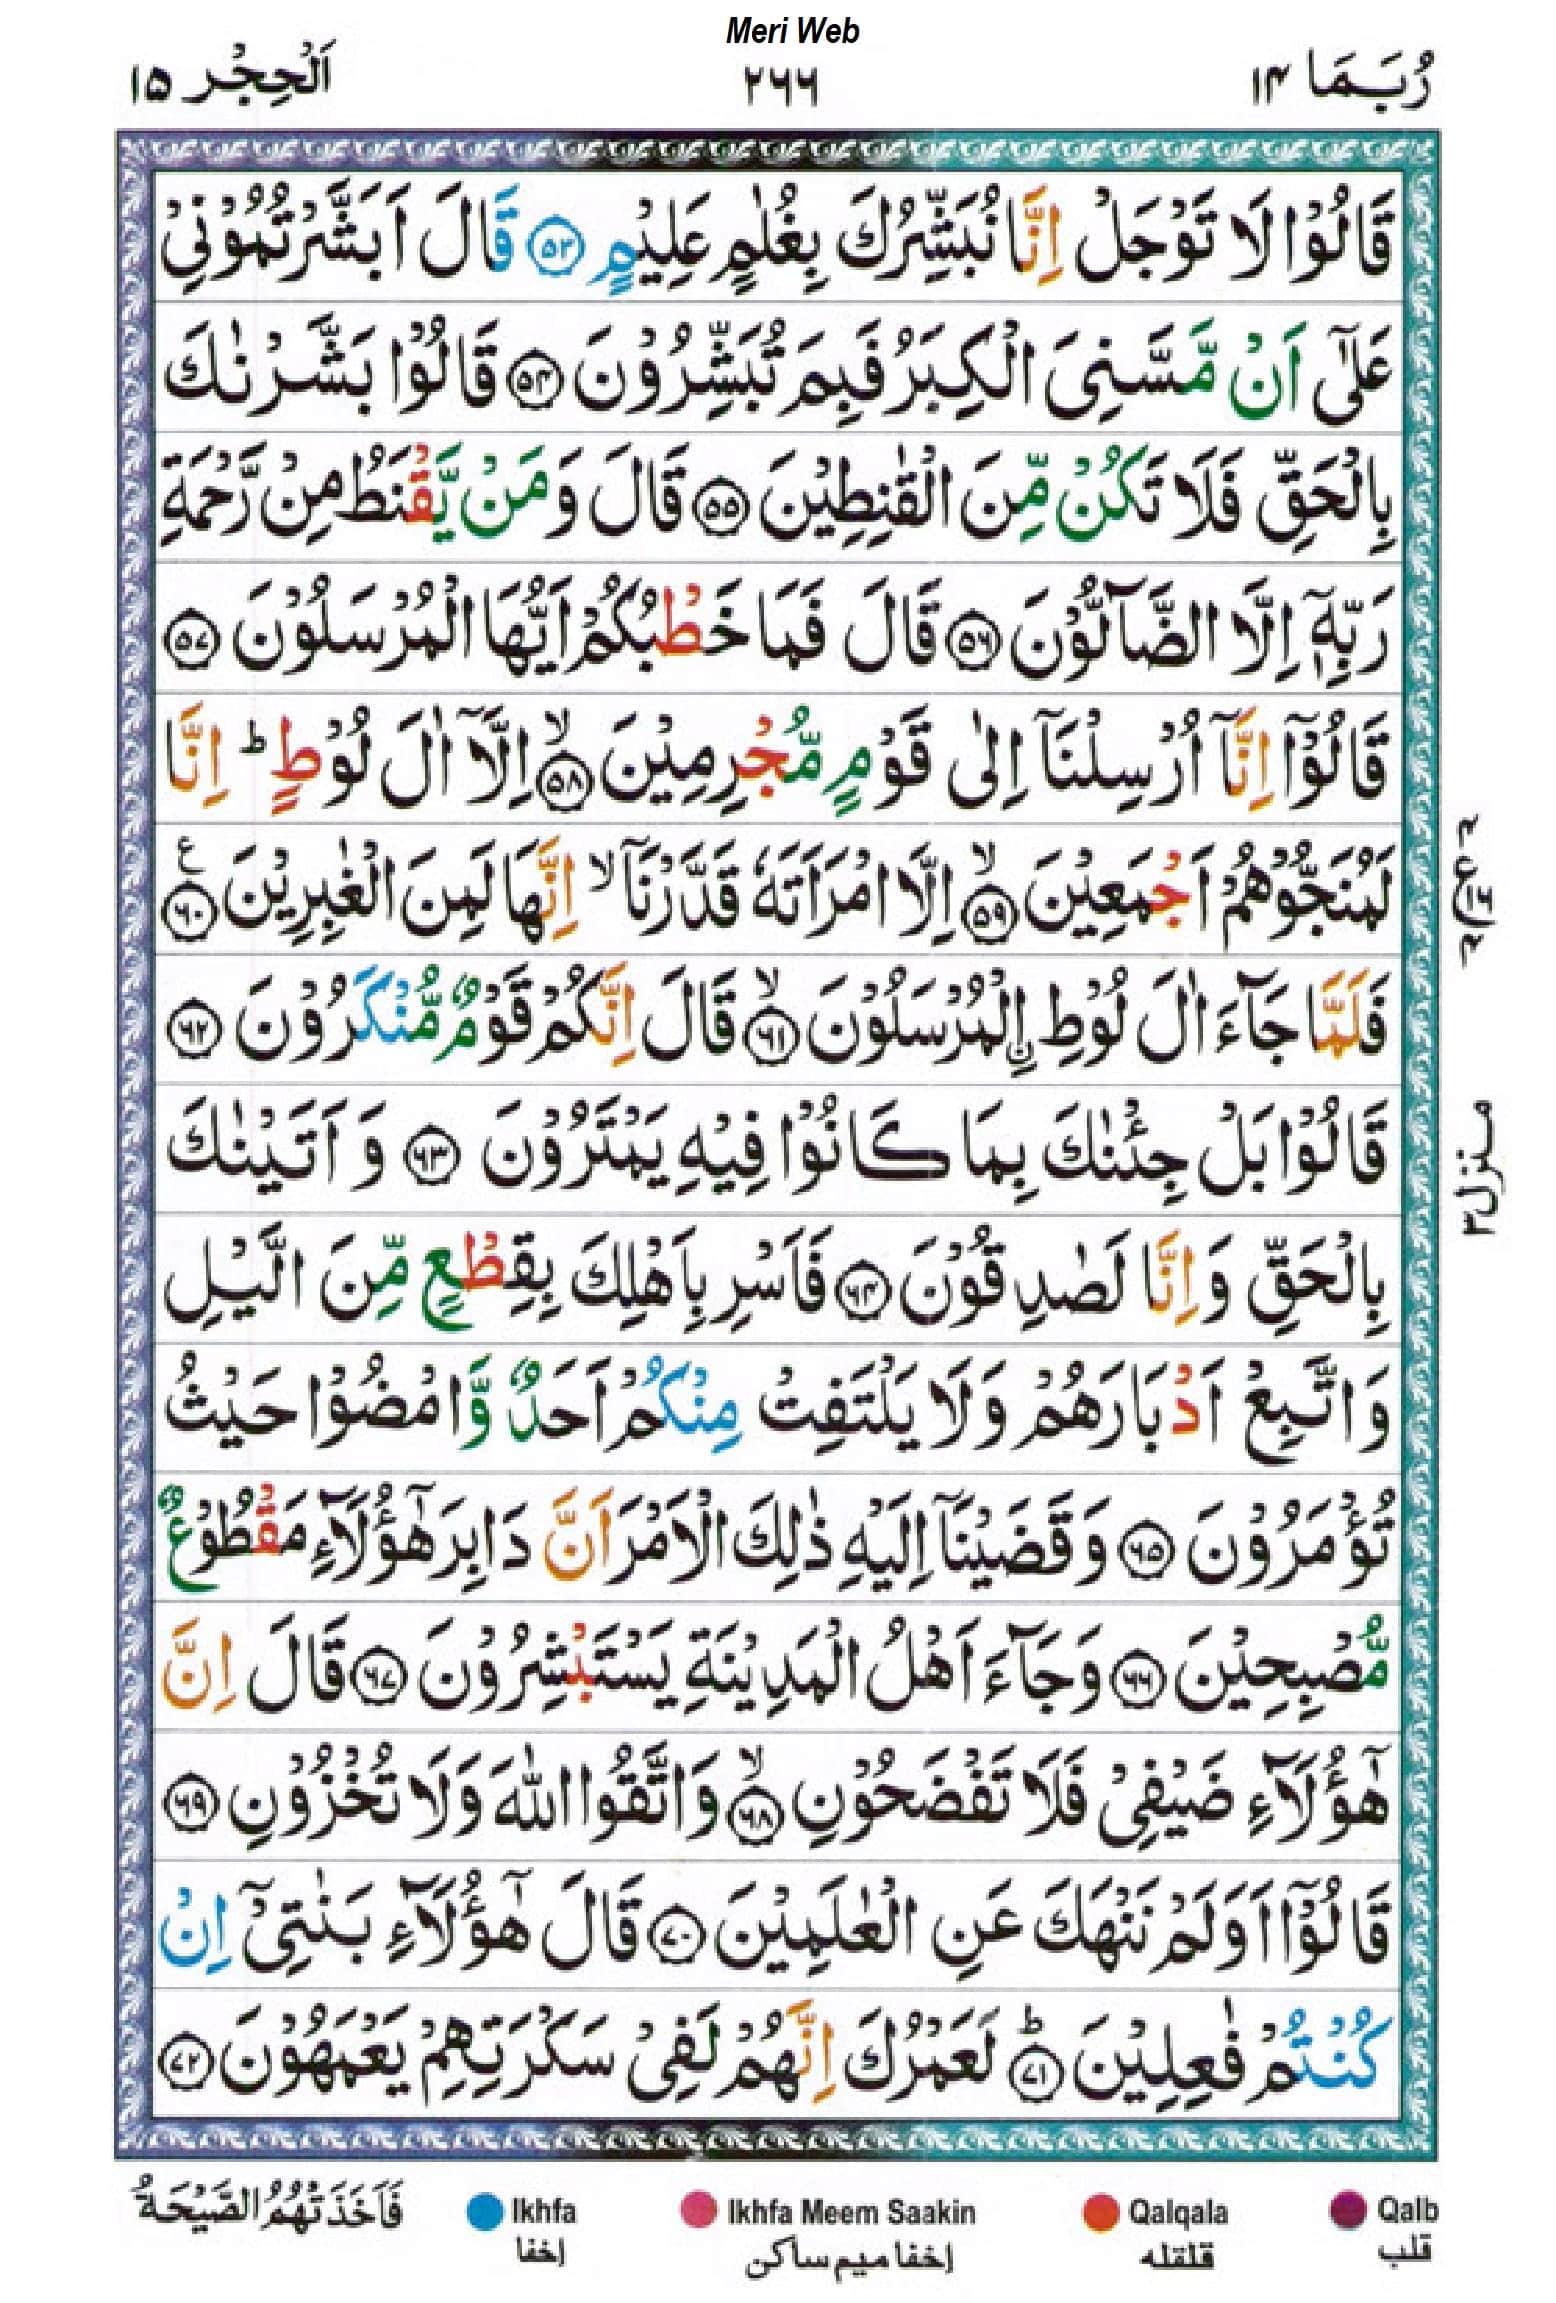 Meri Web
رُبَمَا ۱۴
۲۶۶
اَلْحِجْر ۱۵
قَالُوْا لَا تَوْجَلْ اِنَّا نُبَشِّرُكَ بِغُلٰمٍ عَلِيْمٍ ۵۳ قَالَ اَبَشَّرْتُمُوْنِيْ
عَلٰٓى اَنْ مَّسَّنِىَ الْكِبَرُ فَبِمَ تُبَشِّرُوْنَ ۵۴ قَالُوْا بَشَّرْنٰكَ
بِالْحَقِّ فَلَا تَكُنْ مِّنَ الْقٰنِطِيْنَ ۵۵ قَالَ وَمَنْ يَّقْنَطُ مِنْ رَّحْمَةِ
رَبِّهٖٓ اِلَّا الضَّآلُّوْنَ ۵۶ قَالَ فَمَا خَطْبُكُمْ اَيُّهَا الْمُرْسَلُوْنَ ۵۷
قَالُوْٓا اِنَّآ اُرْسِلْنَآ اِلٰى قَوْمٍ مُّجْرِمِيْنَ ۙ۵۸ اِلَّآ اٰلَ لُوْطٍ ؕ اِنَّا
لَمُنَجُّوْهُمْ اَجْمَعِيْنَ ۙ۵۹ اِلَّا امْرَاَتَهٗ قَدَّرْنَآ ۙ اِنَّهَا لَمِنَ الْغٰبِرِيْنَ ۶۰ ع
فَلَمَّا جَآءَ اٰلَ لُوْطِ ࣙالْمُرْسَلُوْنَ ۙ۶۱ قَالَ اِنَّكُمْ قَوْمٌ مُّنْكَرُوْنَ ۶۲
قَالُوْا بَلْ جِئْنٰكَ بِمَا كَانُوْا فِيْهِ يَمْتَرُوْنَ ۶۳ وَاَتَيْنٰكَ
بِالْحَقِّ وَاِنَّا لَصٰدِقُوْنَ ۶۴ فَاَسْرِ بِاَهْلِكَ بِقِطْعٍ مِّنَ الَّيْلِ
وَاتَّبِعْ اَدْبَارَهُمْ وَلَا يَلْتَفِتْ مِنْكُمْ اَحَدٌ وَّامْضُوْا حَيْثُ
تُؤْمَرُوْنَ ۶۵ وَقَضَيْنَآ اِلَيْهِ ذٰلِكَ الْاَمْرَ اَنَّ دَابِرَ هٰٓؤُلَآءِ مَقْطُوْعٌ
مُّصْبِحِيْنَ ۶۶ وَجَآءَ اَهْلُ الْمَدِيْنَةِ يَسْتَبْشِرُوْنَ ۶۷ قَالَ اِنَّ
هٰٓؤُلَآءِ ضَيْفِيْ فَلَا تَفْضَحُوْنِ ۙ۶۸ وَاتَّقُوا اللّٰهَ وَلَا تُخْزُوْنِ ۶۹
قَالُوْٓا اَوَلَمْ نَنْهَكَ عَنِ الْعٰلَمِيْنَ ۷۰ قَالَ هٰٓؤُلَآءِ بَنٰتِيْٓ اِنْ
كُنْتُمْ فٰعِلِيْنَ ؕ۷۱ لَعَمْرُكَ اِنَّهُمْ لَفِيْ سَكْرَتِهِمْ يَعْمَهُوْنَ ۷۲
منزل۳
فَاَخَذَتْهُمُ الصَّيْحَةُ
Ikhfa
إخفا
Ikhfa Meem Saakin
إخفا ميم ساكن
Qalqala
قلقله
Qalb
قلب